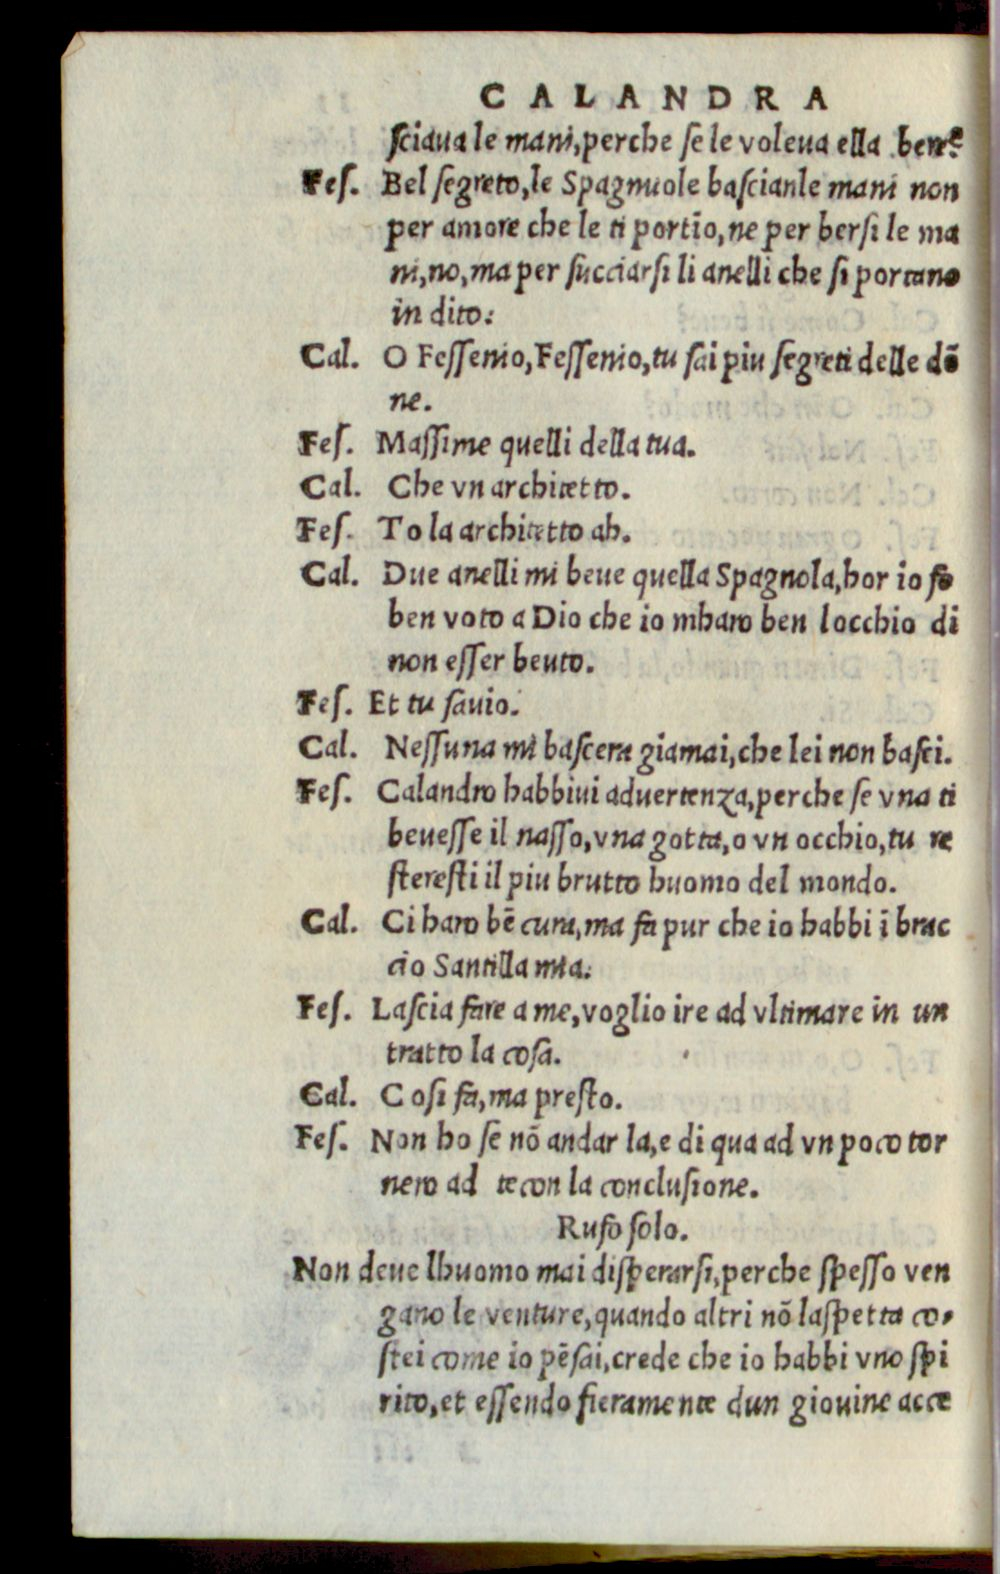 CALANDRA
sciaua le mani, perche se le voleua ella bere?
Fes. Bel segreto, le Spagnuole bascianle mani non
per amore che le ti portīo, ne per bersi le ma
ni, no, ma per succiarsi li anelli che si portano
in dito.
Cal. O Fessenio, Fessenio, tu sai piu segreti delle dō
ne.
Fes. Massime quelli della tua.
Cal. Che vn architetto.
Fes. To la architetto ah.
Cal. Due anelli mi beue quella Spagnola, hor io fo
ben voto a Dio che io mharo ben locchio di
non esser beuto.
Fes. Et tu sauio.
Cal. Nessuna mi bascera giamai, che lei non basci.
Fes. Calandro habbiui aduertenza, perche se vna ti
beuesse il nasso, vna gotta, o vn occhio, tu re
steresti il piu brutto huomo del mondo.
Cal. Ci haro bē cura, ma fa pur che io habbi ī brac
cio Santilla mia.
Fes. Lascia fare a me, voglio ire ad vltimare in un
tratto la cosa.
Cal. Cosi fa, ma presto.
Fes. Non ho se nō andar la, e di qua ad vn poco tor
nero ad te con la conclusione.
Rufo solo.
Non deue lhuomo mai disperarsi, perche spesso ven
gano le venture, quando altri nō laspetta co,
stei come io pēsai, crede che io habbi vno spi
rito, et essendo fieramente dun giouine acce